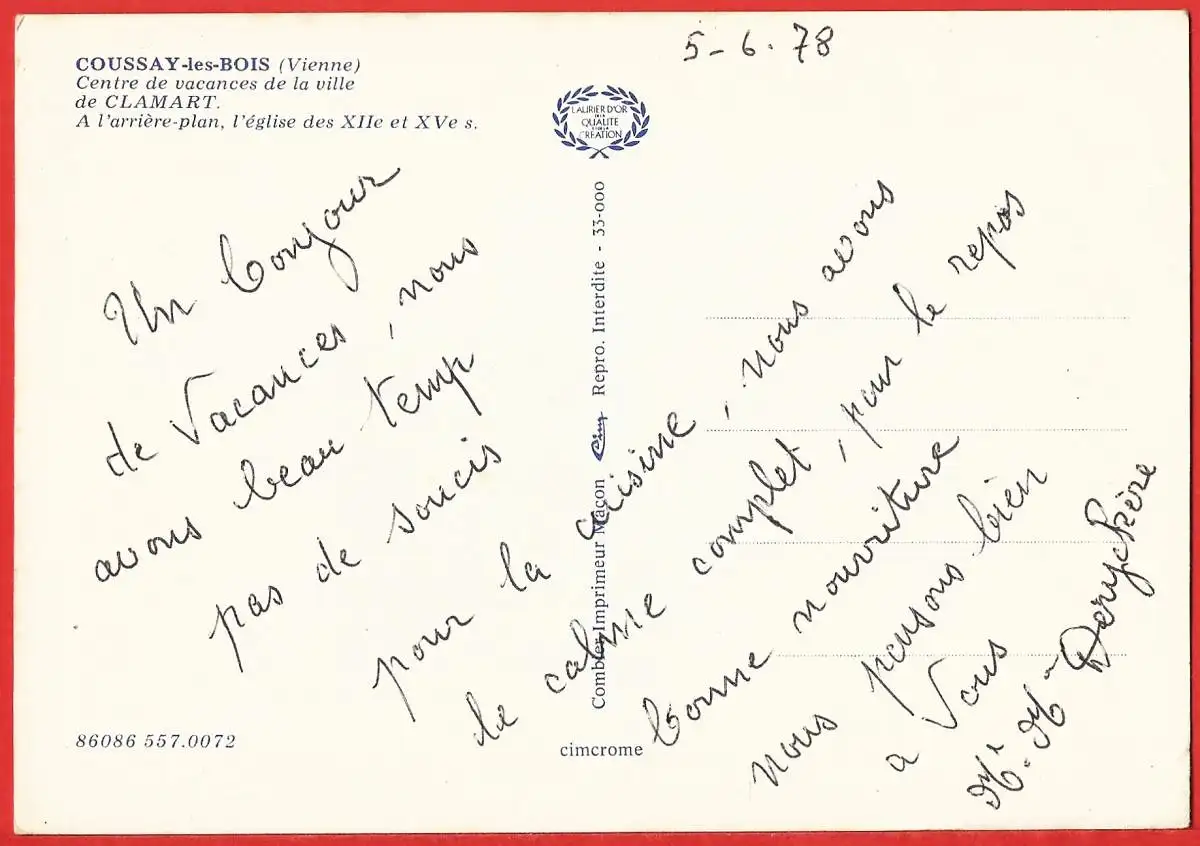 5-6.78
COUSSAY-les-BOIS (Vienne)
Centre de vacances de la ville
de CLAMART.
A l'arrière-plan, l'église des XIIe et XVe s.
LAURIER D'OR
DE LA
QUALITE
ET DE LA
CREATION
Un bonjour
de Vacances, nous
avons beau temp
pas de soucis
pour la cuisine, nous avons
le calme complet, pour le repos
bonne nouriture
nous pensons bien
a Vous
Mr. Mm Deryckère
Combier Imprimeur Macon Cim Repro. Interdite - 33-000
86086 557.0072
cimcrome